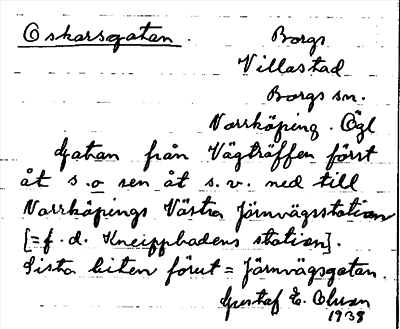 Oskarsgatan. Borgs
Villastad
Borgs sn.
Norrköping. Ögl
Gatan från Vägträffen först
åt s. o sen åt s.v. ned till
Norrköpings Västra Järnvägsstation
[= f. d. Kneippbadens station].
Sista biten förut = Järnvägsgatan.
Gustaf E. Olson
1938